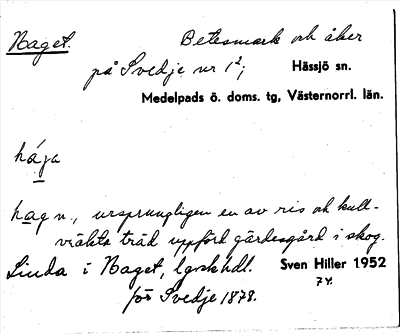 Haget. Betesmark och åker
på Svedje nr 1²; Hässjö sn.
Medelpads ö. doms. tg, Västernorrl. län.
hága
hag n., ursprungligen en av ris och kull-
vräkta träd uppförd gärdesgård i skog.
Linda i Haget, lgskhdl. Sven Hiller 1952
för Svedje 1878. 7 Y.